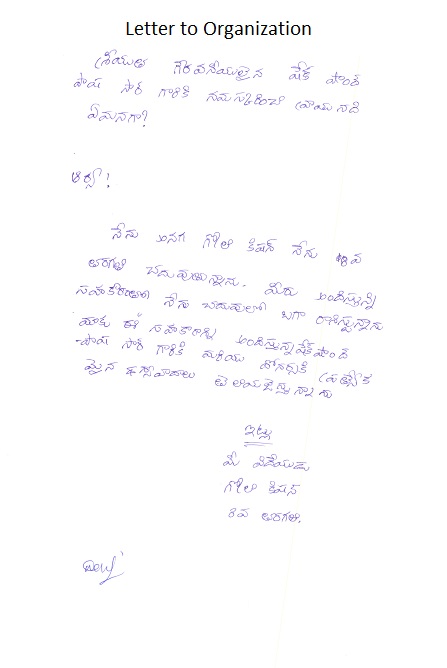 Letter to Organization
శ్రీయుత గౌరవనీయులైన షేక్ చాంద్
పాష సార్ గారికి నమస్కరించి వ్రాయునది
ఏమనగా?
ఆర్య!
నేను అనగ గోలి కిషన్ నేను 8వ
తరగతి చదువుతున్నాను. మీరు అందిస్తున్న
సహకారంతో నేను చదువులో బాగా రాణిస్తున్నాను
మాకు ఈ సహకారాన్ని అందిస్తున్న షేక్ చాంద్
పాష సార్ గారికి మరియు డోనర్లకి ప్రత్యేక
మైన ధన్యవాదాలు తెలియజేస్తున్నాను
ఇట్లు
మీ విదేయుడు
గోలి కిషన్
8వ తరగతి.